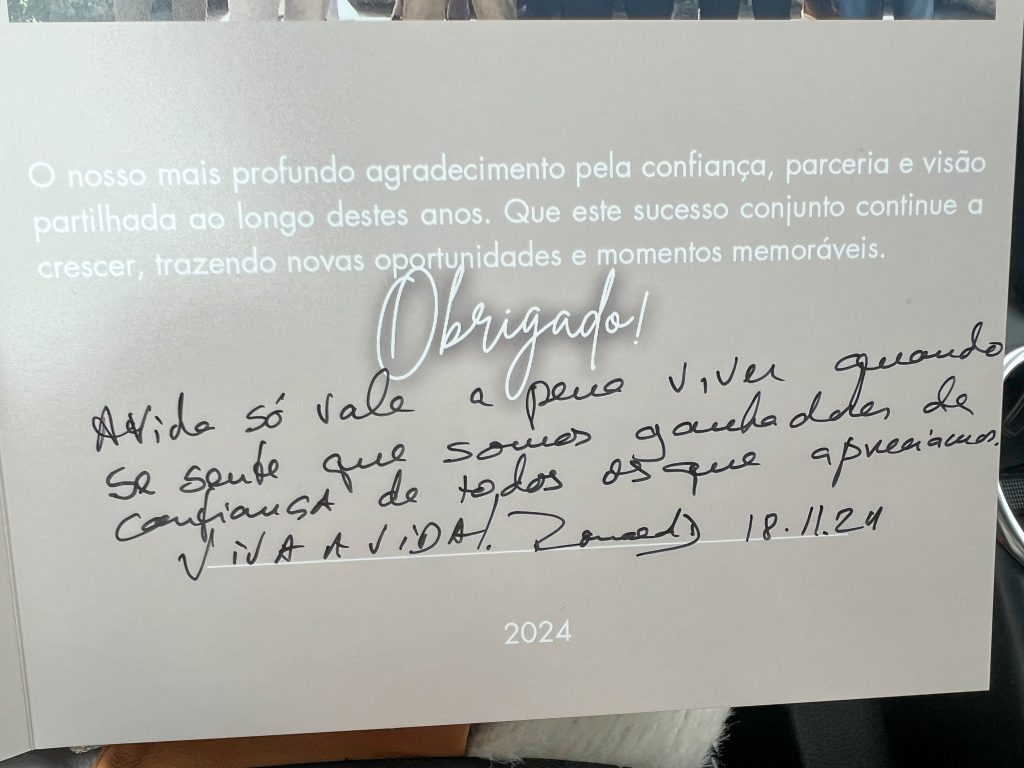 O nosso mais profundo agradecimento pela confiança, parceria e visão
partilhada ao longo destes anos. Que este sucesso conjunto continue a
crescer, trazendo novas oportunidades e momentos memoráveis.
Obrigado!
A vida só vale a pena viver quando
se sente que somos ganhadores de
confiansa de todos os que apreciamos.
VIVA A VIDA! 18.11.24
2024